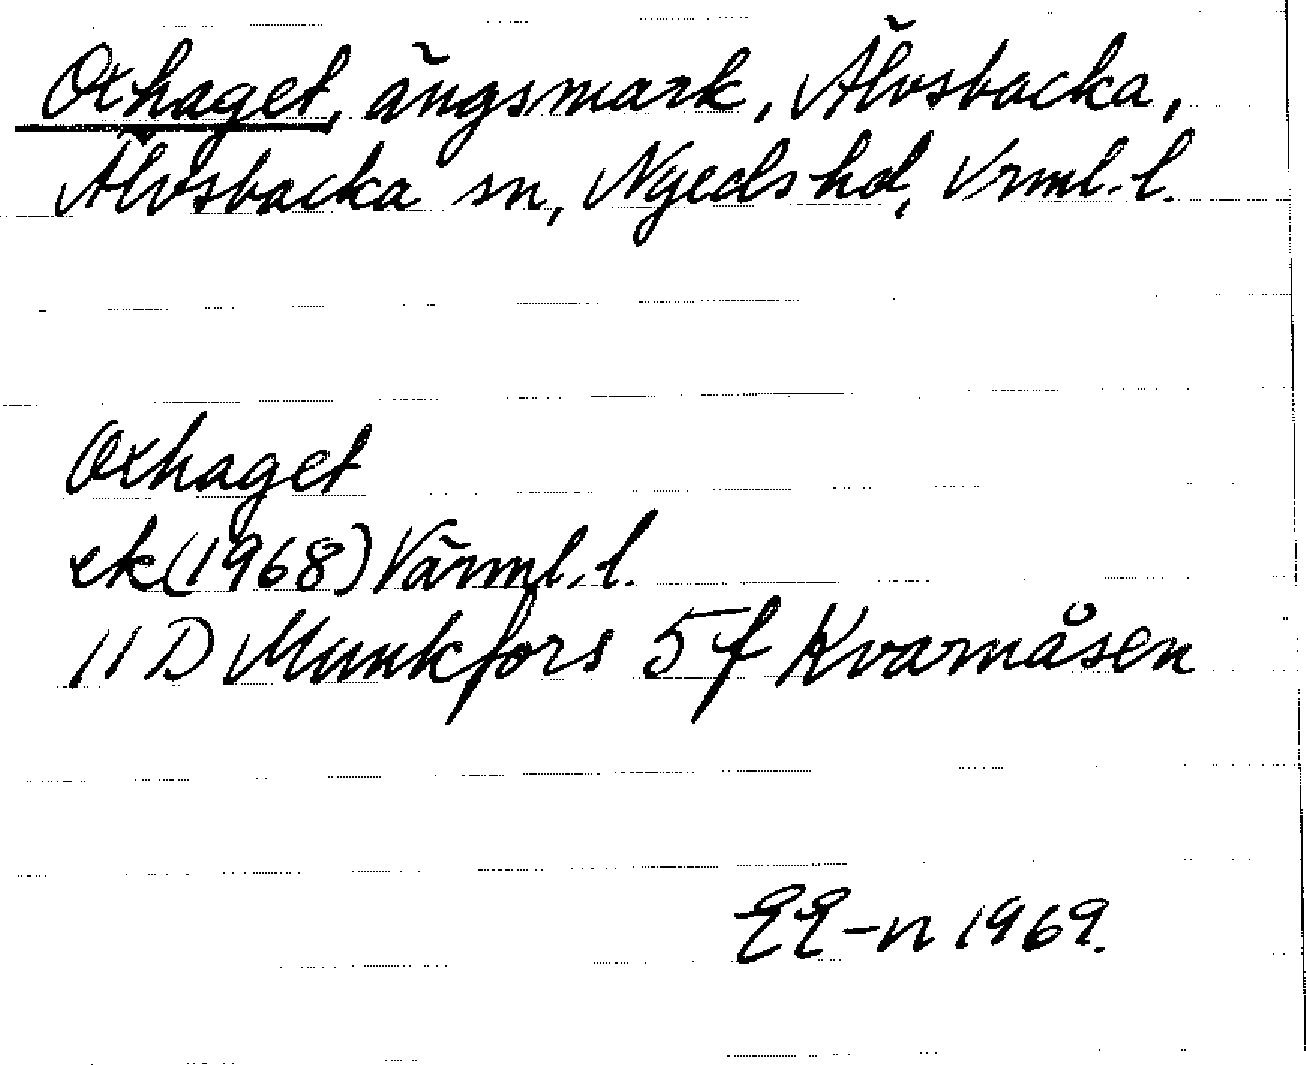 Oxhaget, ängsmark, Älvsbacka,
Älvsbacka sn, Nyeds hd, Vrml. l.
Oxhaget
ek (1968) Värml. l.
11 D Munkfors 5 f Kvarnåsen
EE-n 1969.